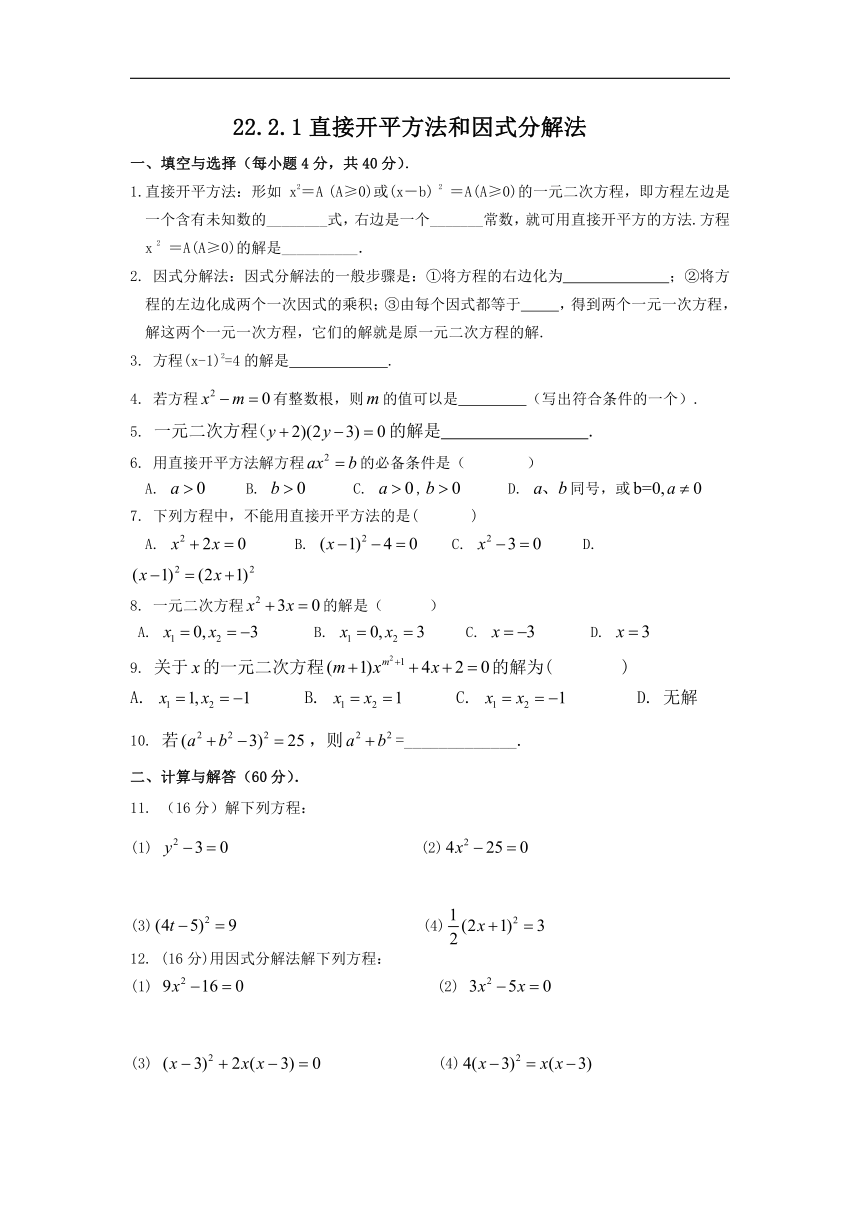 22.2.1直接开平方法和因式分解法
一、填空与选择（每小题4分，共40分）．
1.直接开平方法：形如 x²＝A (A≥0)或(x－b)² ＝A(A≥0)的一元二次方程，即方程左边是
一个含有未知数的________式，右边是一个_______常数，就可用直接开平方的方法．方程
x² ＝A(A≥0)的解是__________．
2. 因式分解法：因式分解法的一般步骤是：①将方程的右边化为______________；②将方
程的左边化成两个一次因式的乘积；③由每个因式都等于_____，得到两个一元一次方程，
解这两个一元一次方程，它们的解就是原一元二次方程的解．
3. 方程(x-1)²=4的解是_____________．
4. 若方程x²－m＝0有整数根，则m的值可以是_________（写出符合条件的一个）．
5. 一元二次方程(y＋2)(2y－3)＝0的解是________________．
6. 用直接开平方法解方程ax²＝b的必备条件是（ ）
A. a＞0 B. b＞0 C. a＞0，b＞0 D. a、b同号，或b=0,a≠0
7. 下列方程中，不能用直接开平方法的是( )
A. x²＋2x＝0 B. (x－1)²－4＝0 C. x²－3＝0 D.
(x－1)²＝(2x＋1)²
8. 一元二次方程x²＋3x＝0的解是（ ）
A. x₁＝0,x₂＝－3 B. x₁＝0,x₂＝3 C. x＝－3 D. x＝3
9. 关于x的一元二次方程(m＋1)x^{m²＋1}＋4x＋2＝0的解为( )
A. x₁＝1,x₂＝－1 B. x₁＝x₂＝1 C. x₁＝x₂＝－1 D. 无解
10. 若(a²＋b²－3)²＝25，则a²＋b²=_____________．
二、计算与解答（60分）．
11. （16分）解下列方程：
(1) y²－3＝0 (2)4x²－25＝0
(3)(4t－5)²＝9 (4)\frac{1}{2}(2x＋1)²＝3
12. (16分)用因式分解法解下列方程：
(1) 9x²－16＝0 (2) 3x²－5x＝0
(3) (x－3)²＋2x(x－3)＝0 (4)4(x－3)²＝x(x－3)